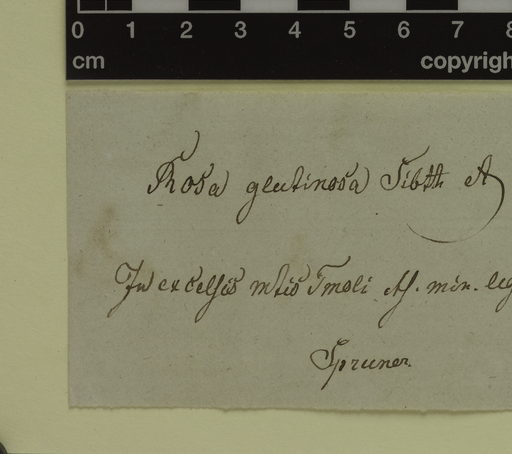 0 1 2 3 4 5 6 7 8
cm copyrigh
Rosa glutinosa Sibth
In excelsis mtis Tmoli As. min. leg
Spruner